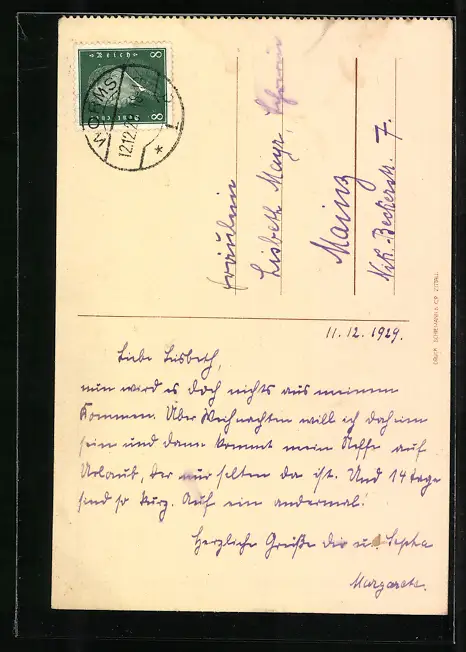 Deutsches Reich
8 8
WORMS
12.12.2
* 1
Fräulein
Lisbeth Mayr,
Mainz
Nik. Beckerstr. 7.
11. 12. 1929.
Liebe Lisbeth,
nun wird es doch nichts aus meinem
Kommen. Über Weihnachten will ich daheim
sein und dann kommt mein Neffe auf
Urlaub, der nur selten da ist. Und 14 Tage
sind so kurz. Auf ein andermal!
Herzliche Grüße dir u. Sepha
Margarete.